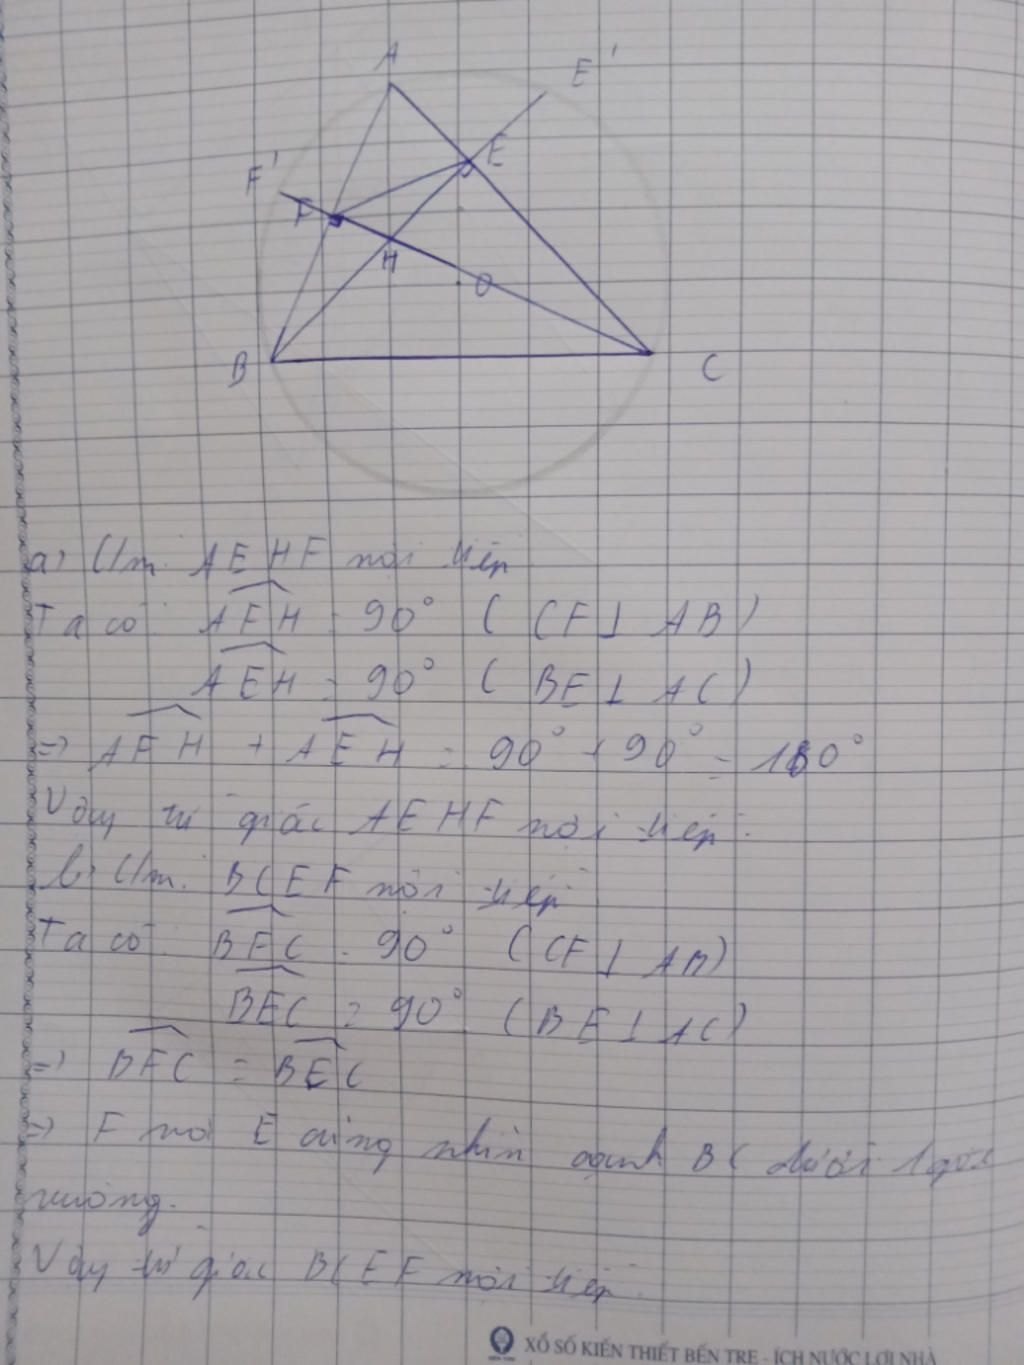 A
E'
E
F'
F
H
O
B
C
a) C/m. AEHF nội tiếp
Ta có: AFH = 90° ( CF ⊥ AB )
AEH = 90° ( BE ⊥ AC )
=> AFH + AEH = 90° + 90° = 180°
Vậy tứ giác AEHF nội tiếp.
b) C/m. BCEF nội tiếp
Ta có: BFC = 90° ( CF ⊥ AB )
BEC = 90° ( BE ⊥ AC )
=> BFC = BEC
=> F và E cùng nhìn cạnh BC dưới 1 góc
vuông.
Vậy tứ giác BCEF nội tiếp.
XỔ SỐ KIẾN THIẾT BẾN TRE - ÍCH NƯỚC LỢI NHÀ